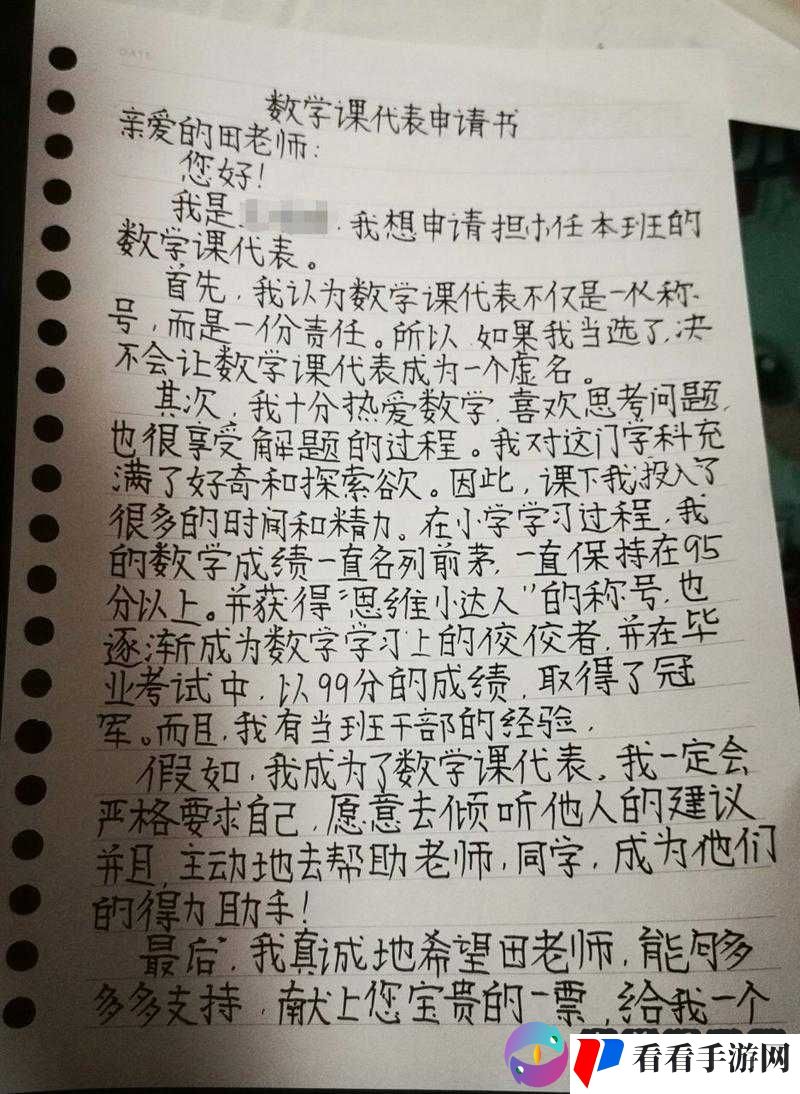 DATE
数学课代表申请书
亲爱的田老师:
您好!
我是 , 我想申请担任本班的
数学课代表。
首先, 我认为数学课代表不仅是一个称
号, 而是一份责任。所以, 如果我当选了, 决
不会让数学课代表成为一个虚名。
其次, 我十分热爱数学, 喜欢思考问题,
也很享受解题的过程。我对这门学科充
满了好奇和探索欲。因此, 课下我投入了
很多的时间和精力。在小学学习过程, 我
的数学成绩一直名列前茅, 一直保持在95
分以上。并获得“思维小达人”的称号, 也
逐渐成为数学学习上的佼佼者, 并在毕
业考试中, 以99分的成绩, 取得了冠
军。而且, 我有当班干部的经验,
假如, 我成为了数学课代表。我一定会
严格要求自己, 愿意去倾听他人的建议
并且, 主动地去帮助老师, 同学, 成为他们
的得力助手!
最后, 我真诚地希望田老师, 能够多
多多支持, 献上您宝贵的一票, 给我一个
看看手游网